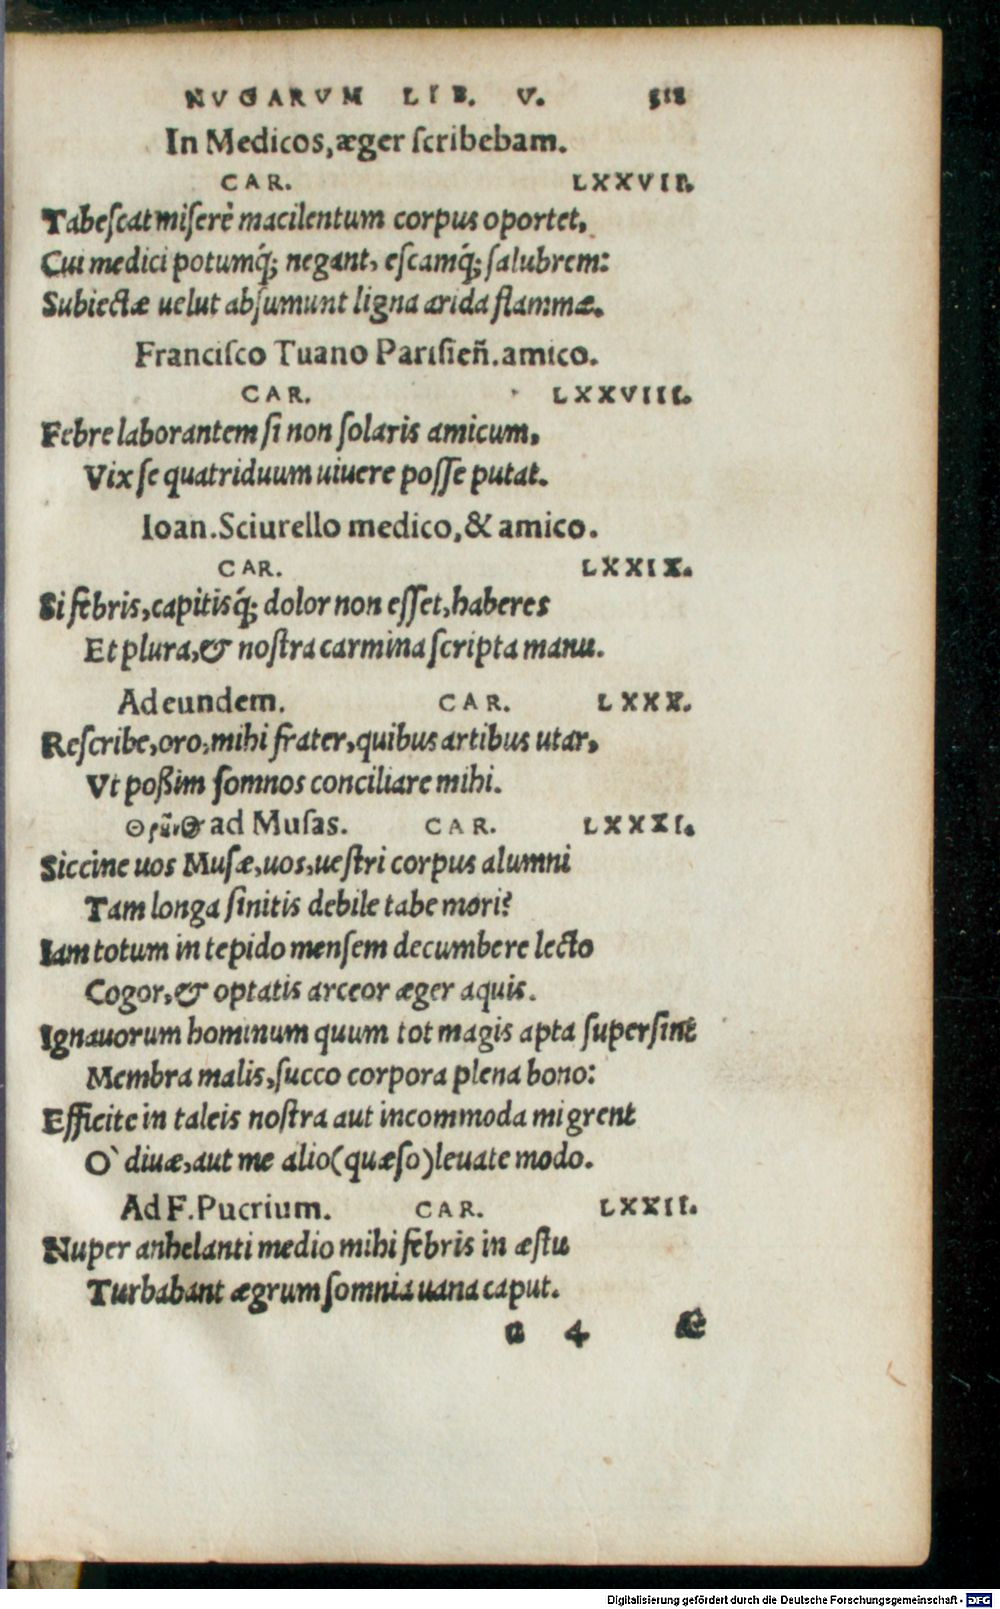 NVGARVM LIB. V. 311
In Medicos, æger ſcribebam.
CAR. LXXVII.
Tabeſcat miſerè macilentum corpus oportet,
Cui medici potumq́; negant, eſcamq́; ſalubrem:
Subiectæ uelut abſumunt ligna arida flammæ.
Franciſco Tuano Pariſieñ. amico.
CAR. LXXVIII.
Febre laborantem ſi non ſolaris amicum,
Vix ſe quatriduum uiuere poſſe putat.
Ioan. Sciurello medico, & amico.
CAR. LXXIX.
Si febris, capitisq́; dolor non eſſet, haberes
Et plura, & noſtra carmina ſcripta manu.
Ad eundem. CAR. LXXX.
Reſcribe, oro, mihi frater, quibus artibus utar,
Vt poßim ſomnos conciliare mihi.
ad Muſas. CAR. LXXXI.
Siccine uos Muſæ, uos, ueſtri corpus alumni
Tam longa ſinitis debile tabe mori?
Iam totum in tepido menſem decumbere lecto
Cogor, & optatis arceor æger aquis.
Ignauorum hominum quum tot magis apta ſuperſint
Membra malis, ſucco corpora plena bono:
Efficite in taleis noſtra aut incommoda migrent
O` diuæ, aut me alio (quæſo) leuate modo.
Ad F. Pucrium. CAR. LXXII.
Nuper anhelanti medio mihi febris in æſtu
Turbabant ægrum ſomnia uana caput.
a 4 Æ
Digitalisierung gefördert durch die Deutsche Forschungsgemeinschaft - DFG